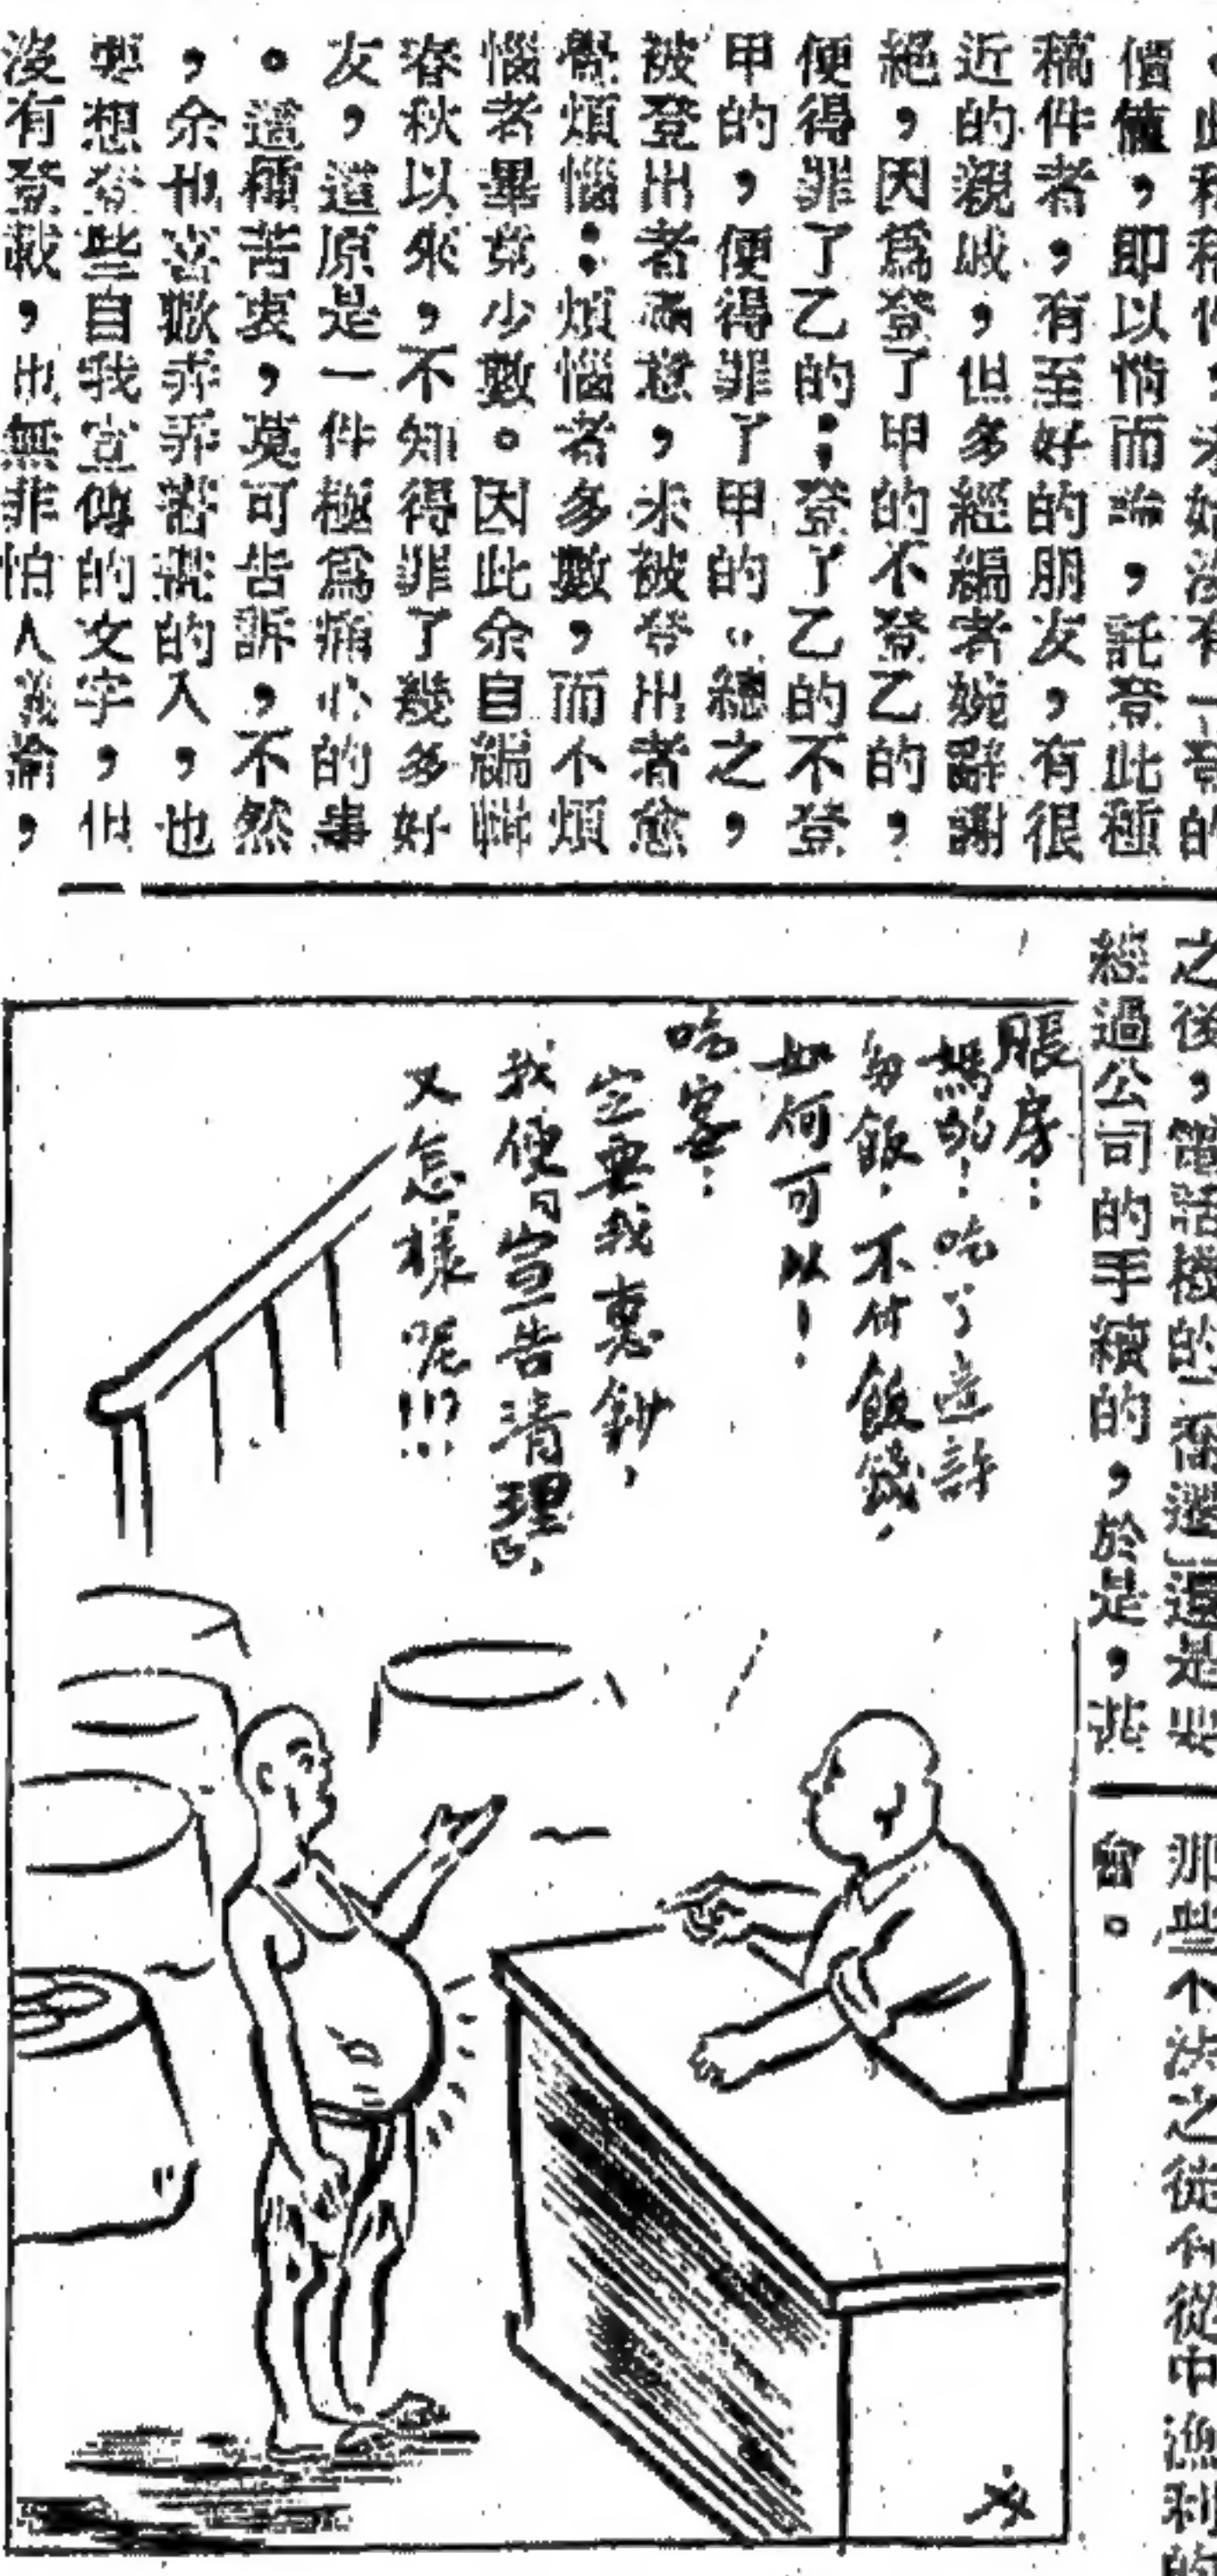 有一登的
價值，即以情而論，託登此種
稿件者，有至好的朋友，有很
近的親戚，但多經編者婉辭謝
絕，因爲登了甲的不登乙的，
便得罪了乙的；登了乙的不登
甲的，便得罪了甲的。總之，
被登出者滿意，未被登出者愈
覺煩惱；煩惱者多數，而不煩
惱者畢竟少數。因此余自編輯
春秋以來，不知得罪了幾多好
友，這原是一件極爲痛心的事
。這種苦衷，莫可告訴，不然
，余也 的人，也
要想登些自我宣傳的文字，但
沒有登載，也無非怕人議論，
之後，電話機的 還是
經過公司的手續的，於是，
賬房：
媽的！吃了這許
多飯，不付飯錢，
如何可以！
吃客：
定要我惠鈔，
我便曰宣告清理，
又怎樣呢！！？
那些 從中漁利的
會。